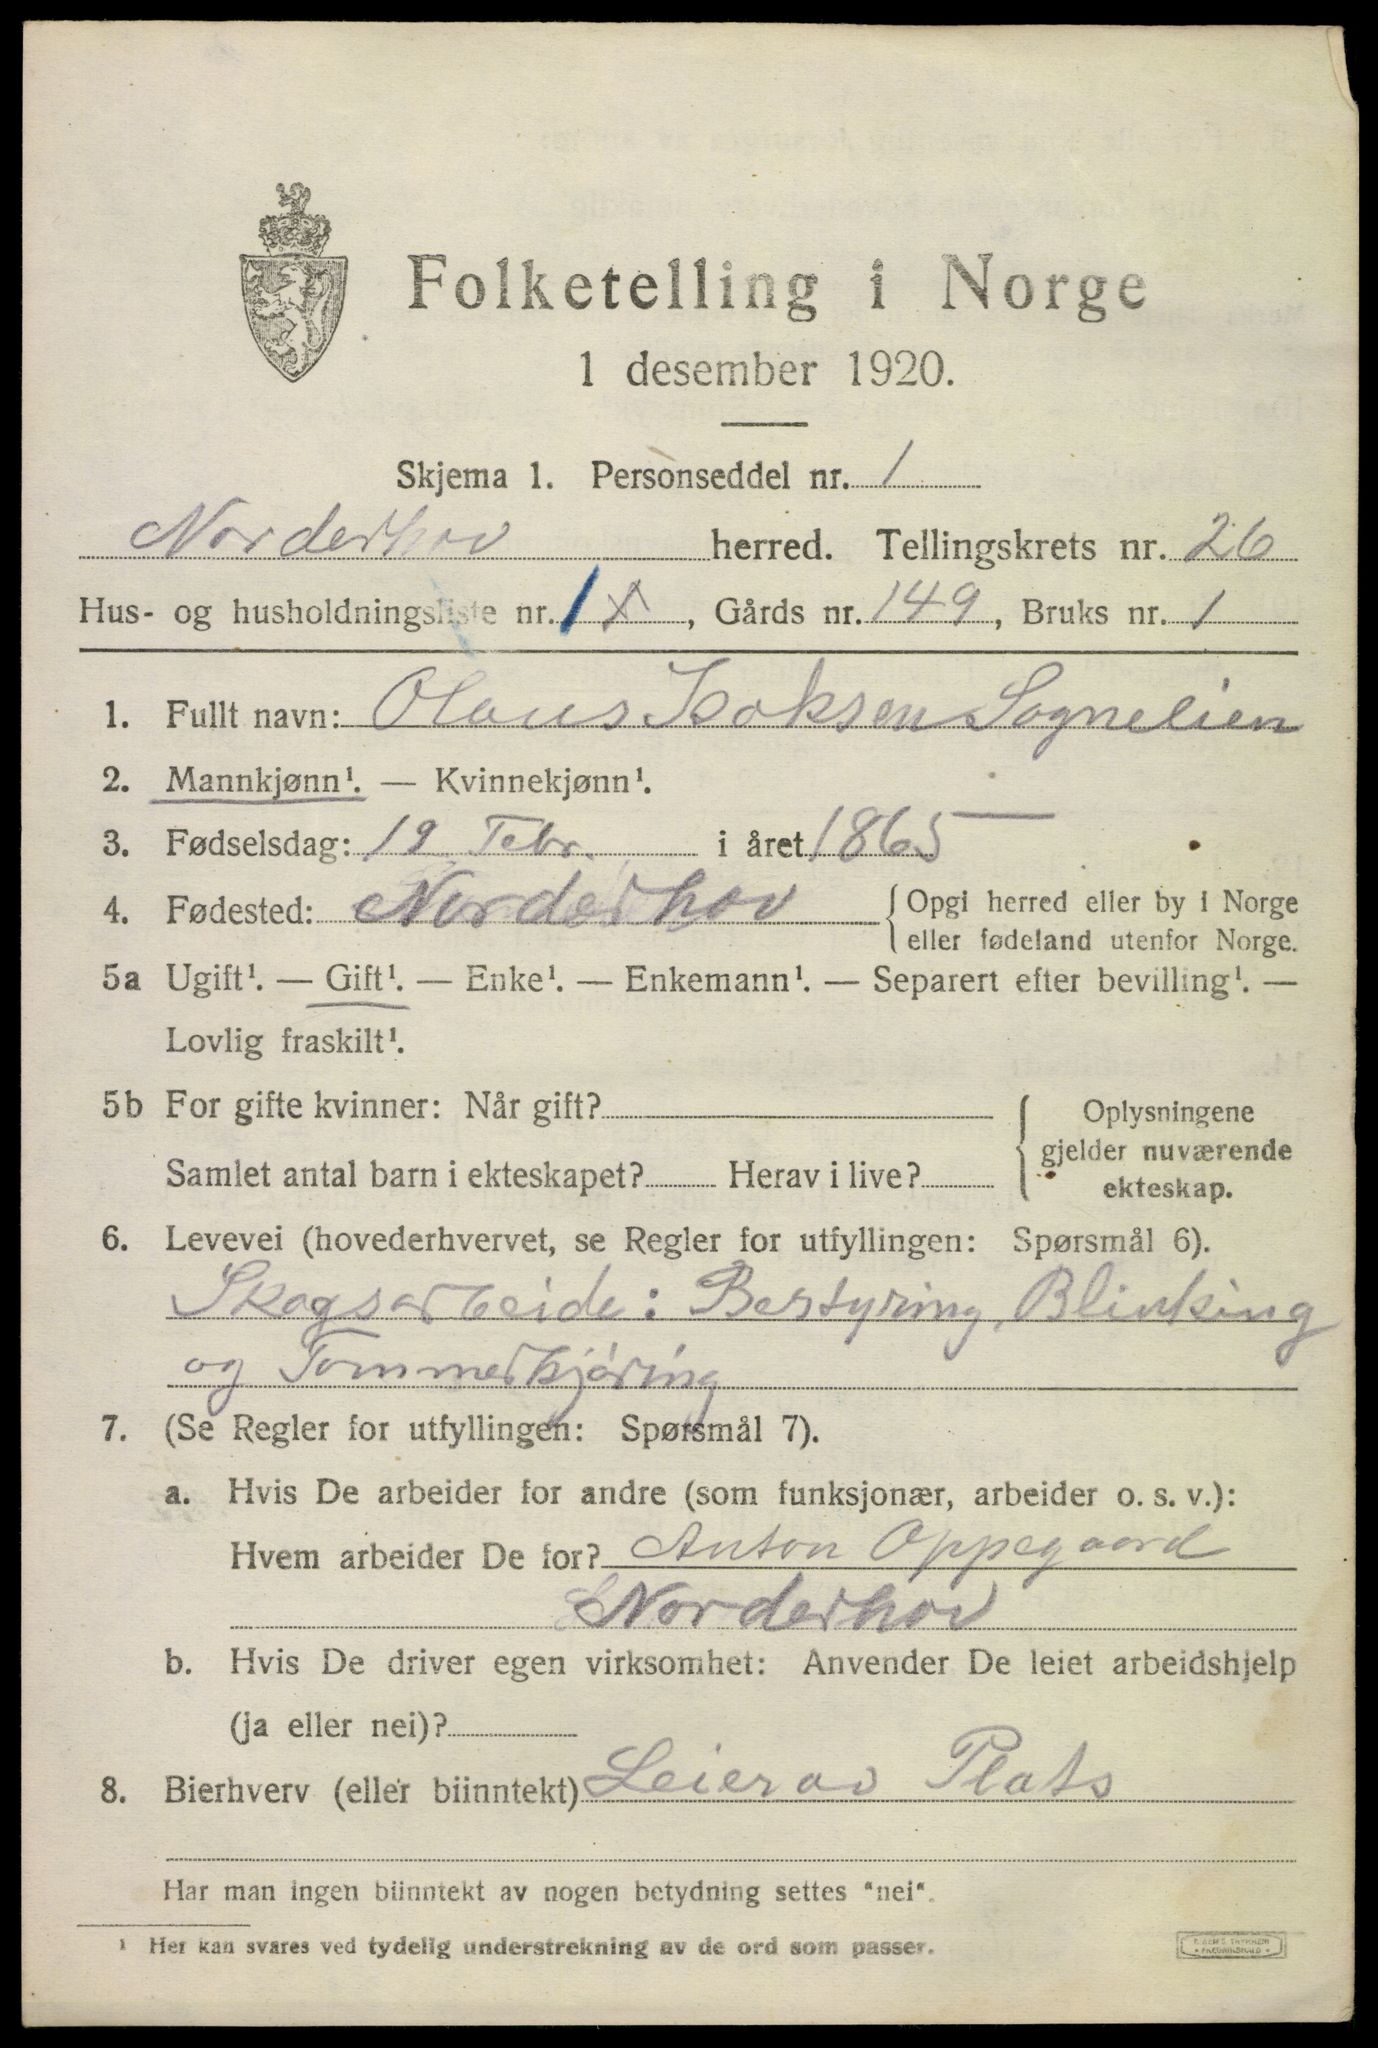 Folketelling i Norge
1 desember 1920.
Skjema 1. Personseddel nr. 1
Norderhov herred. Tellingskrets nr. 26
Hus- og husholdningsliste nr. 1 X, Gårds nr. 149, Bruks nr. 1
1. Fullt navn: Olaus Isaksen Sognelien
2. Mannkjønn¹. — Kvinnekjønn¹.
3. Fødselsdag: 19 Febr. i året 1865
4. Fødested: Norderhov { Opgi herred eller by i Norge
eller fødeland utenfor Norge.
5a Ugift¹. — Gift¹. — Enke¹. — Enkemann¹. — Separert efter bevilling¹. —
Lovlig fraskilt¹.
5b For gifte kvinner: Når gift? { Oplysningene
gjelder nuværende
Samlet antal barn i ekteskapet? Herav i live? ekteskap.
6. Levevei (hovederhvervet, se Regler for utfyllingen: Spørsmål 6).
Skogsarbeide: Bestyring, Blinking
og Tommerkjøring
7. (Se Regler for utfyllingen: Spørsmål 7).
a. Hvis De arbeider for andre (som funksjonær, arbeider o. s. v.):
Hvem arbeider De for? Anton Oppegaard
Norderhov
b. Hvis De driver egen virksomhet: Anvender De leiet arbeidshjelp
(ja eller nei)?
8. Bierhverv (eller biinntekt) Leier av Plats
Har man ingen biinntekt av nogen betydning settes "nei".
¹ Her kan svares ved tydelig understrekning av de ord som passer.